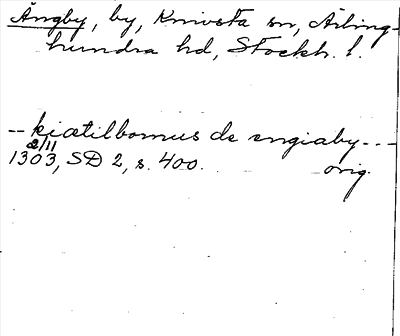 Ängby, by, Knivsta sn, Ärling-
hundra hd, Stockh. l.
-- kiætilbornus de engiaby ---
2/11
1303, SD 2, s. 400. orig.